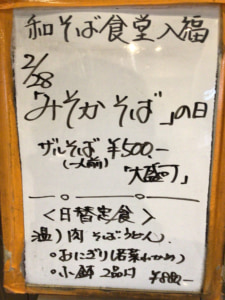 和そば食堂入福
2/28
「みそかそば」の日
ザルそば ¥500.-
(一人前)
「大盛可」
<日替定食>
温)肉そば・うどん
・おにぎり(若菜わかめ)
・小鉢 2品付